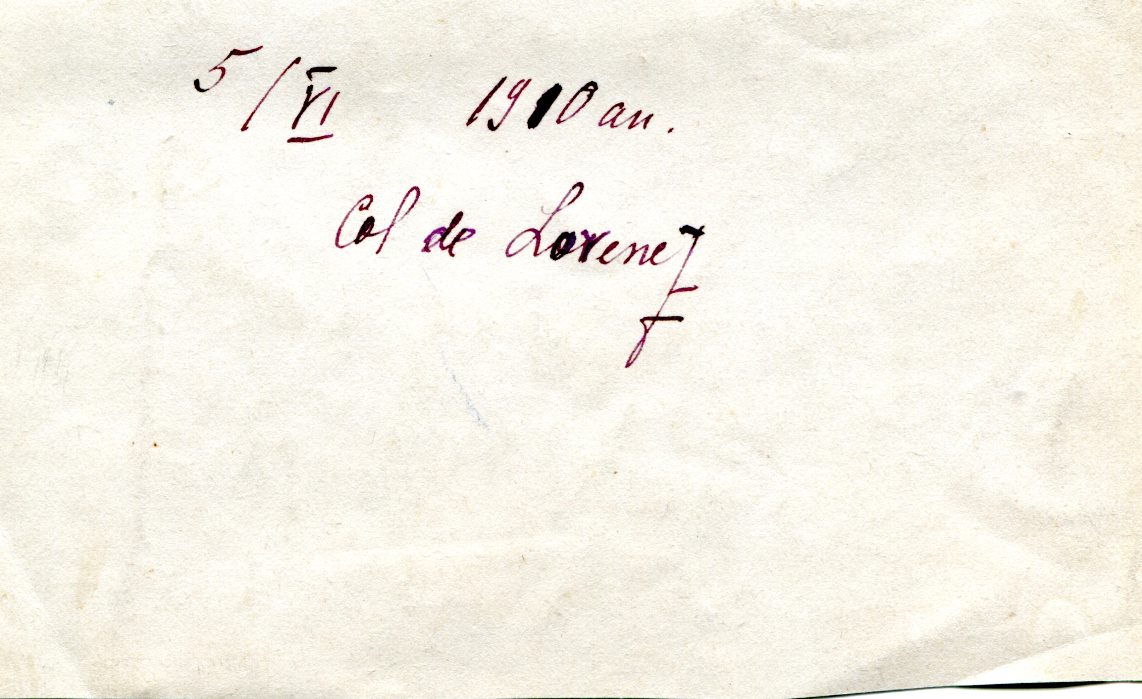 5/VI 1910 an.
Col de Lorenez